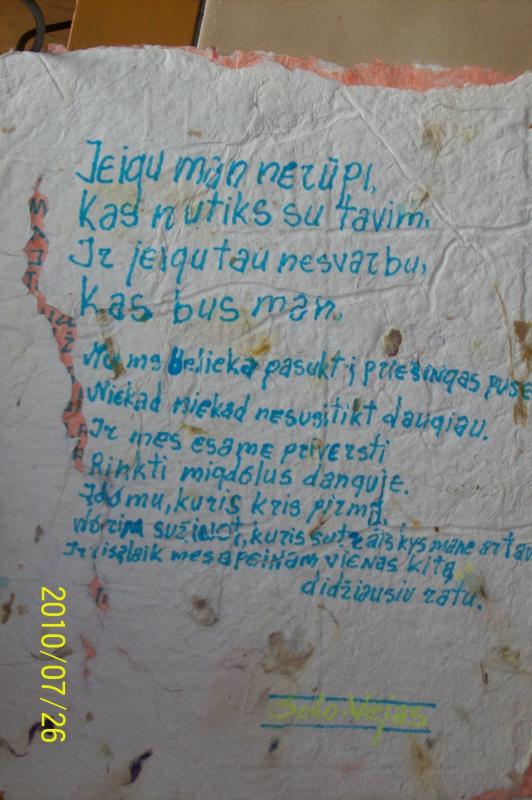 Jeigu man nerūpi,
Kas nutiks su tavim.
Ir jeigu tau nesvarbu,
Kas bus man.
Mums belieka pasukt į priešingas puse
Niekad niekad nesusitikt daugiau.
Ir mes esame priversti
Rinkti migdolus danguje.
Įdomu, kuris kris pirmą,
Norim sužinot, kuris sutraiškys mane ar tav
Ir išlaik mes apeinam vienas kitą
didžiausiu ratu.
Solo-Vėjas
2010/07/26